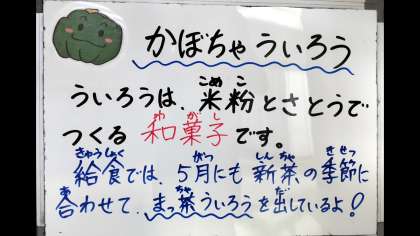 かぼちゃういろう
ういろうは、米粉とさとうで
こめ こ
つくる 和菓子です。
わ が し
給食では、5月にも新茶の季節に
きゅうしょく がつ しん ちゃ きせつ
合わせて、まっ茶ういろうを出しているよ!
あ ちゃ だ